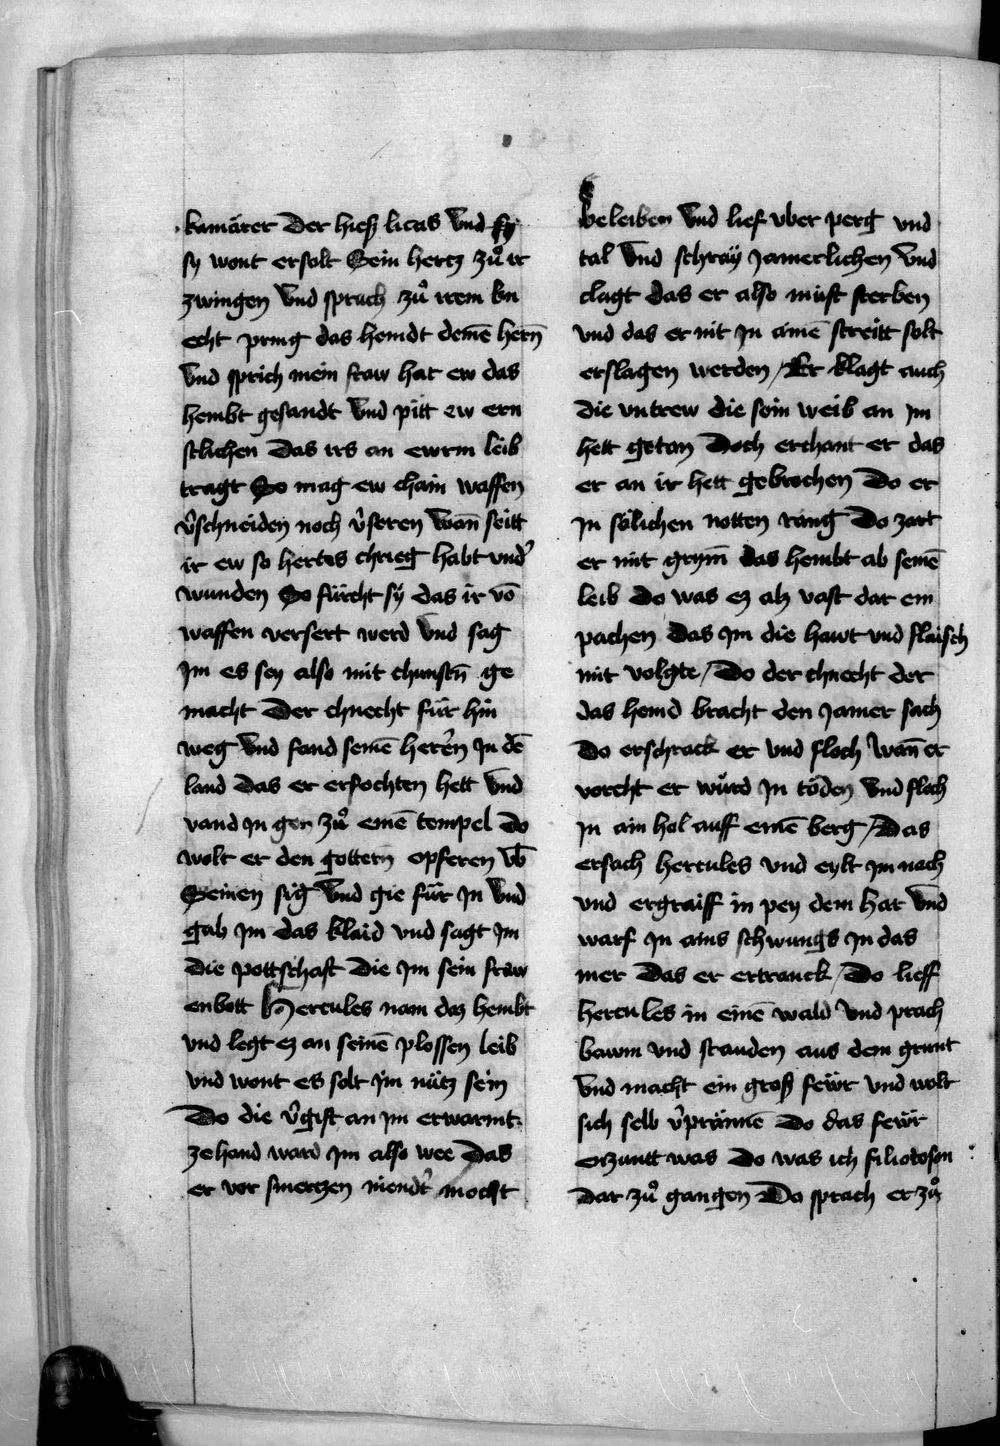 kamärer Der hiesz licas Vnd sy
sy wont er solt Sein hertz zů ir
zwingen Vnd sprach zů irem kn
echt pring das hemdt deinē hern̄
Vnd sprich mein fraw hat ew das
hembt gesandt Vnd pitt ew ern
stlichen Das irs an ewrm leib
tragt So mag ew chain waffen
v̄schneiden noch v̄seren Wan̄ seitt
ir ew so hertes chrieg habt vnd̕
wunden So fürcht sÿ das ir vō
waffen versert werd Vnd sag
Im es sey also mit chunstn̄ ge
macht Der chnecht für hin
weg Vnd fand seinē herr̄n In dē
land das er erfochten hett Vnd
vand In gen zů einē tempel Do
wolt er den gottern opferen vb̄
Seinen sig Vnd gie für In Vnd
gab Im das klaid vnd sagt Im
die pottschaft die Im sein fraw
enbott Hercules nam daz hembt
vnd legt ez an seinē plossen leib
vnd wont es solt Im nütz sein
Do die v̄gift an Im erwarmt
zehand ward Im also wee Das
er vor smertzen niendt̕ mocht
beleiben Vnd lief vber perg vnd
tal Vnd schraÿ Jamerlichen Vnd
clagt das er also müst sterben
vnd das er nit In ainē streitt solt
erslagen werden / Er klagt auch
die vntrew die sein weib an Im
hett getan Doch erchant er das
er an ir hett gebrochen Do er
In sölichen notten rang Do zart
er mit grym̄ das hembt ab seinē
leib Do was ez alz vast dar ein
pachen Das Im die hawt vnd flaisch
mit volgte / Do der chnecht der
das hemd bracht den Jamer sach
Do erschrack er vnd floch Wan̄ er
vorcht er würd In töden Vnd floch
In ain hol auff einē berg / Das
ersach hercules vnd eylt Im nach
vnd ergraiff in pey dem har Vnd
warf In ains schwungs In das
mer Das er ertranck / Do lieff
hercules in einē wald Vnd prach
bawm vnd stauden aus dem grunt
Vnd macht ein grosz feẅr vnd wolt
sich selb v̄prännē Do das feẅr
erzuntt was Do was ich filiotosen
dar zů gangen Do sprach er zů